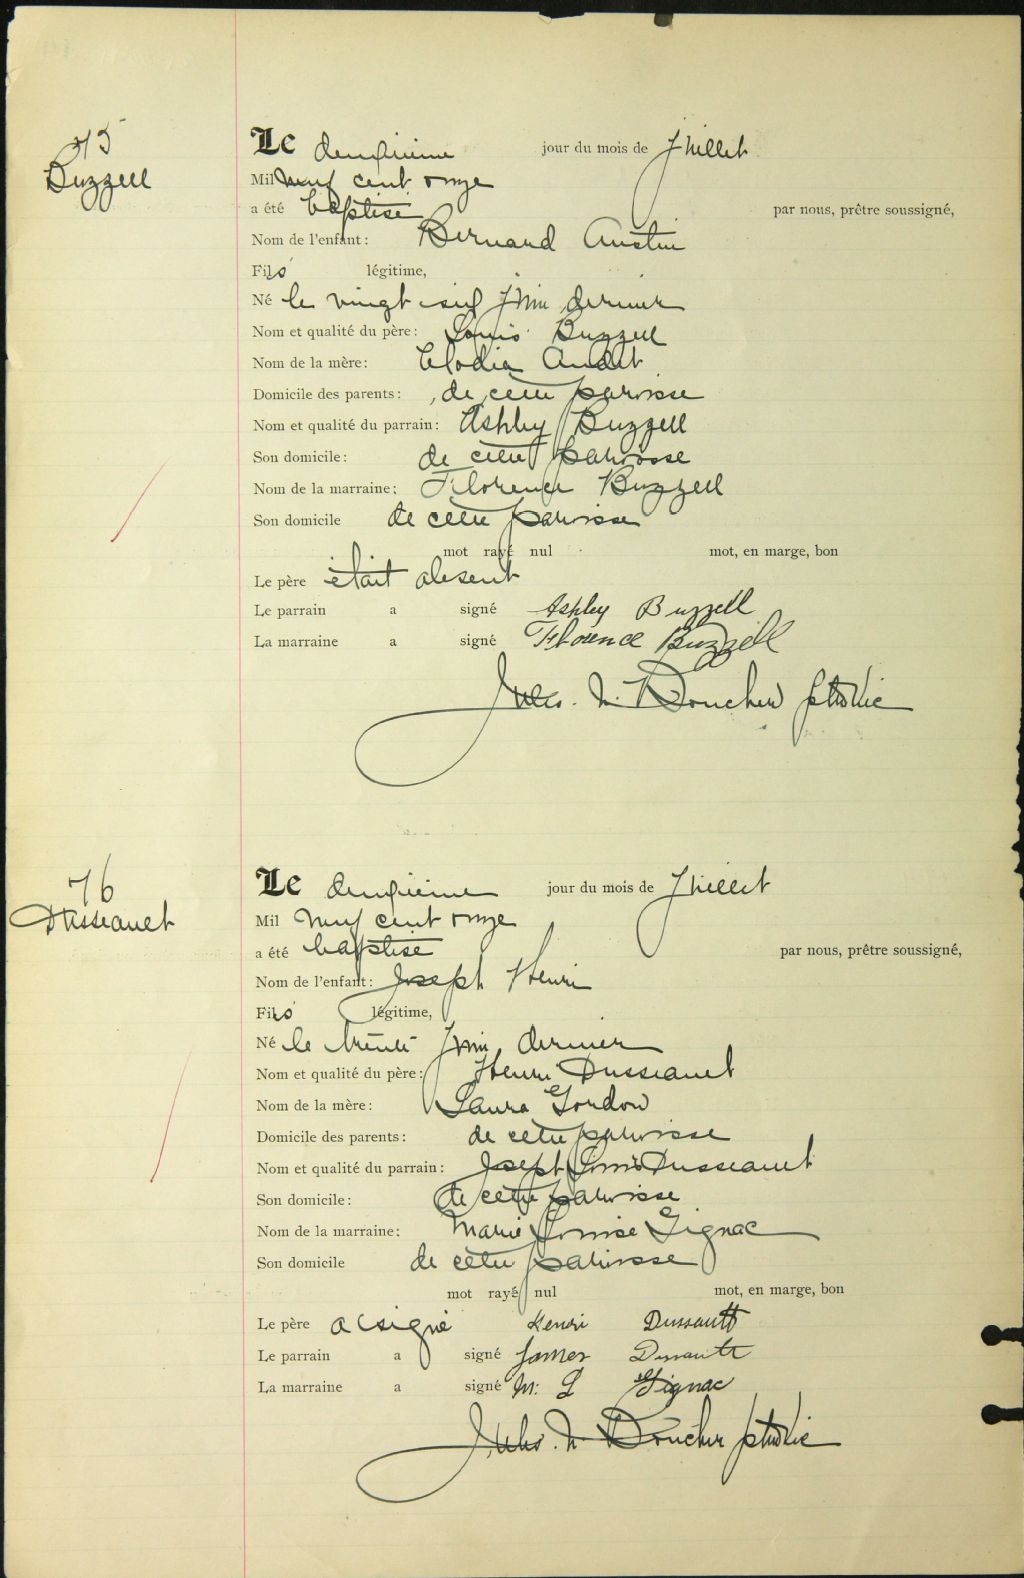 75
Buzzell
Le deuxième jour du mois de Juillet
Mil neuf cent onze
a été baptisé par nous, prêtre soussigné,
Nom de l'enfant: Bernard Austin
Fils légitime,
Né le vingt-six Juin dernier
Nom et qualité du père: Louis Buzzell
Nom de la mère: Elodia Audet
Domicile des parents: de cette paroisse
Nom et qualité du parrain: Ashley Buzzell
Son domicile: de cette paroisse
Nom de la marraine: Florence Buzzell
Son domicile de cette paroisse
mot rayé nul mot, en marge, bon
Le père était absent
Le parrain a signé Ashley Buzzell
La marraine a signé Florence Buzzell
Jules N. Boucher ptre
76
Dusseault
Le deuxième jour du mois de Juillet
Mil neuf cent onze
a été baptisé par nous, prêtre soussigné,
Nom de l'enfant: Joseph Henri
Fils légitime,
Né le trente Juin dernier
Nom et qualité du père: Henri Dusseault
Nom de la mère: Laura Gordon
Domicile des parents: de cette paroisse
Nom et qualité du parrain: Joseph Dusseault
Son domicile: de cette paroisse
Nom de la marraine: Marie Louise Gignac
Son domicile de cette paroisse
mot rayé nul mot, en marge, bon
Le père a signé Henri Dussault
Le parrain a signé James Dussault
La marraine a signé M. L Gignac
Jules N. Boucher ptre